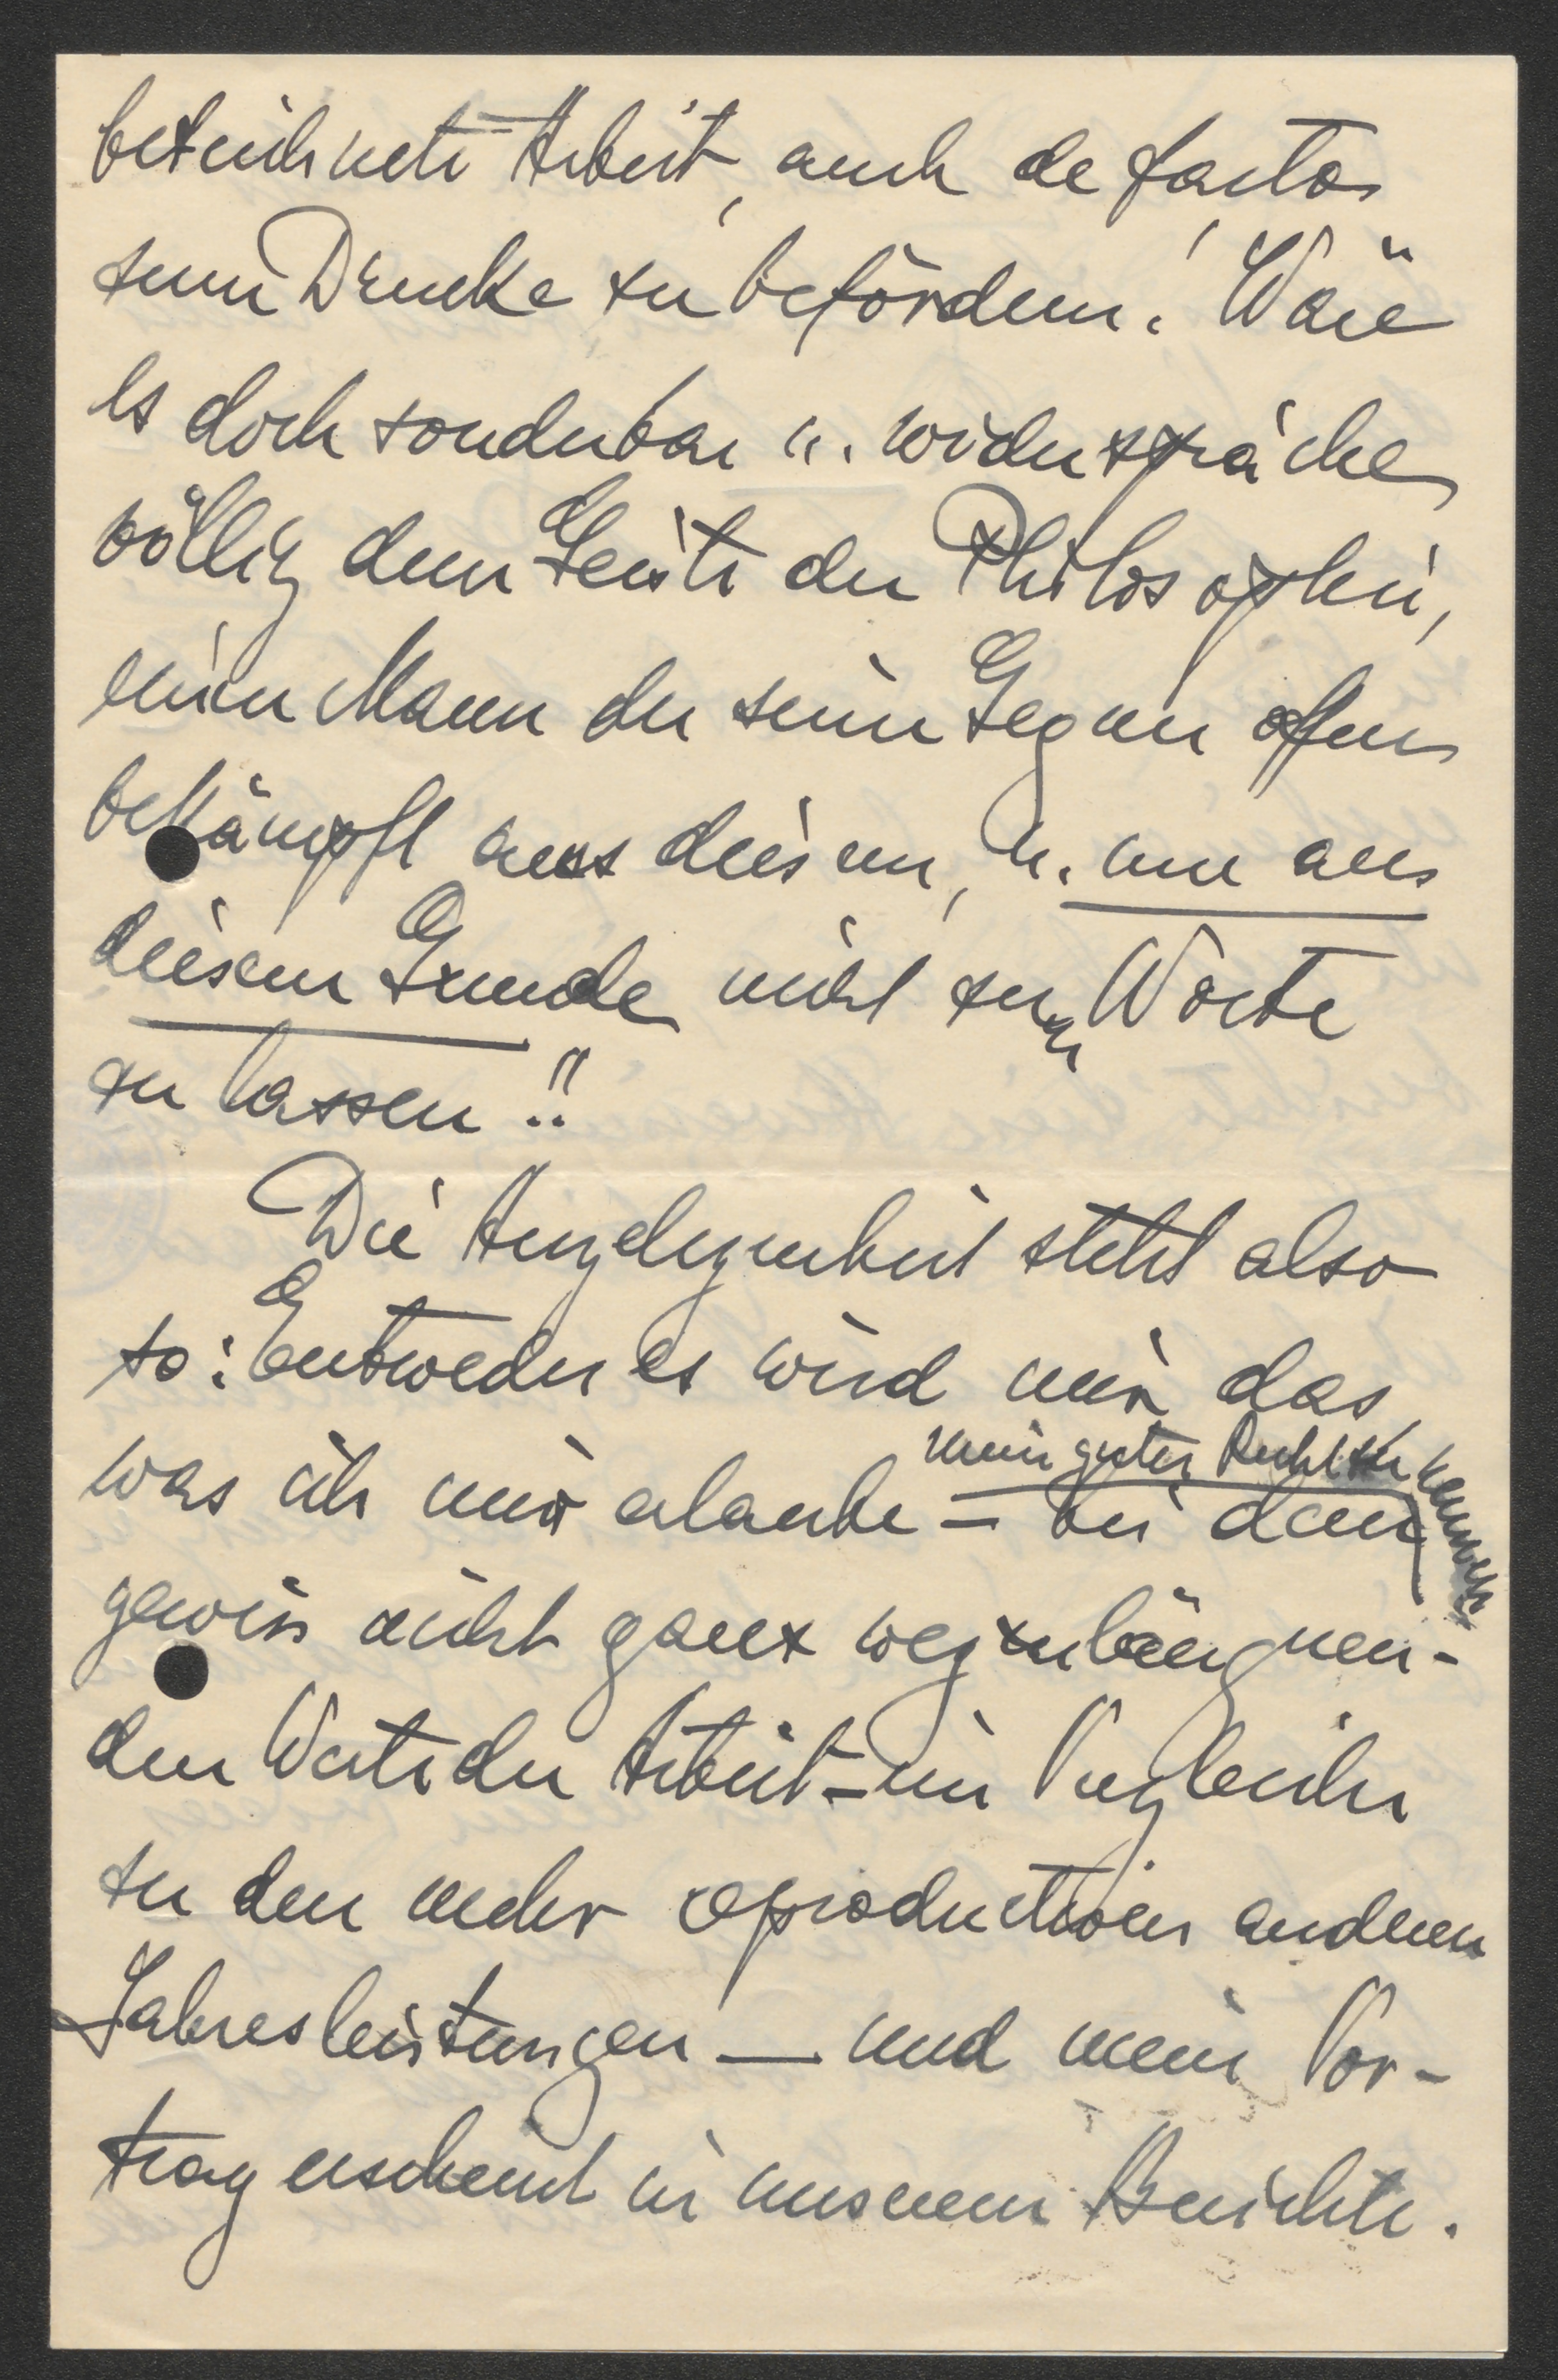 bezeichnete Arbeit, auch de facto
zum Drucke zu befördern! Wäre
es doch sonderbar u. widerspräche
völlig dem Geiste der Philosophie,
einen Mann der seine Gegner offen
bekämpft aus diesem, u. nur aus
diesem Grunde nicht zum Worte
zu lassen!!
Die Angelegenheit steht also
so: Entweder es wird mir das,
was ich mir erlaube mein gutes Recht zu nennen
– bei dem
gewiss nicht ganz wegzuläugnen-
den Werte der Arbeit – im Vergleiche
zu den mehr reproductiven anderen
Jahresleistungen — und mein Vor-
trag erscheint in unserem Berichte.